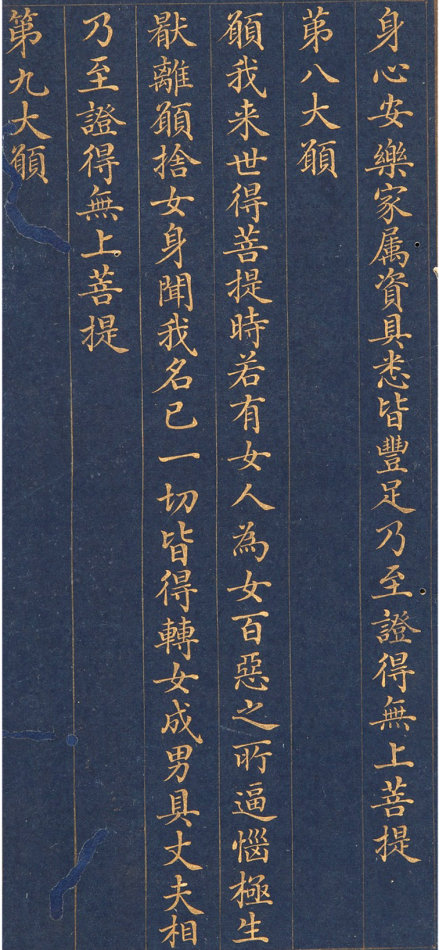 身心安樂家属資具悉皆豐足乃至證得無上菩提
苐八大願
願我来世得菩提時若有女人為女百惡之所逼惱極生
猒離願捨女身聞我名已一切皆得轉女成男具丈夫相
乃至證得無上菩提
苐九大願